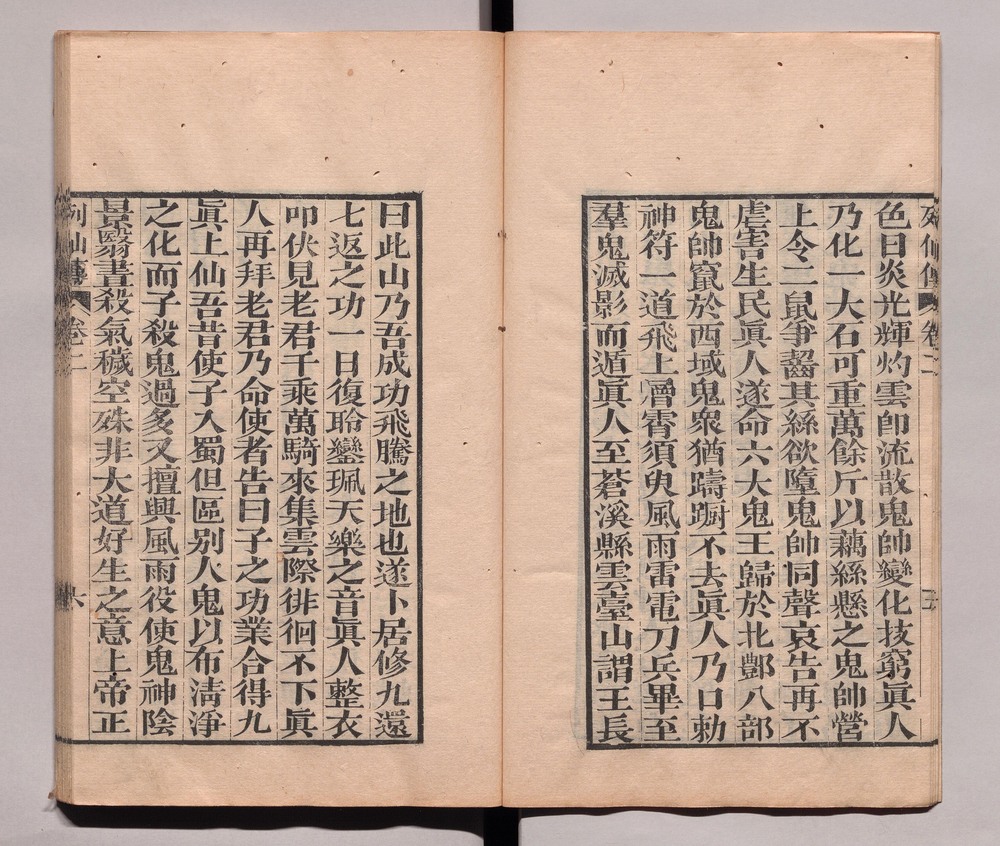 列仙傳 卷二 五
色日炎光輝灼雲卽流散鬼帥變化技窮眞人
乃化一大石可重萬餘斤以藕絲懸之鬼帥營
上令二鼠爭齧其絲欲墮鬼帥同聲哀告再不
虐害生民眞人遂命六大鬼王歸於北酆八部
鬼帥竄於西域鬼衆猶躊蹰不去眞人乃口勅
神符一道飛上層霄須臾風雨雷電刀兵畢至
羣鬼滅影而遁眞人至蒼溪縣雲臺山謂王長
曰此山乃吾成功飛騰之地也遂卜居修九還
七返之功一日復聆鑾珮天樂之音眞人整衣
叩伏見老君千乘萬騎來集雲際徘徊不下眞
人再拜老君乃命使者告曰子之功業合得九
眞上仙吾昔使子入蜀但區別人鬼以布淸淨
之化而子殺鬼過多又擅興風雨役使鬼神陰
景翳晝殺氣穢空殊非大道好生之意上帝正
列仙傳 卷二 六